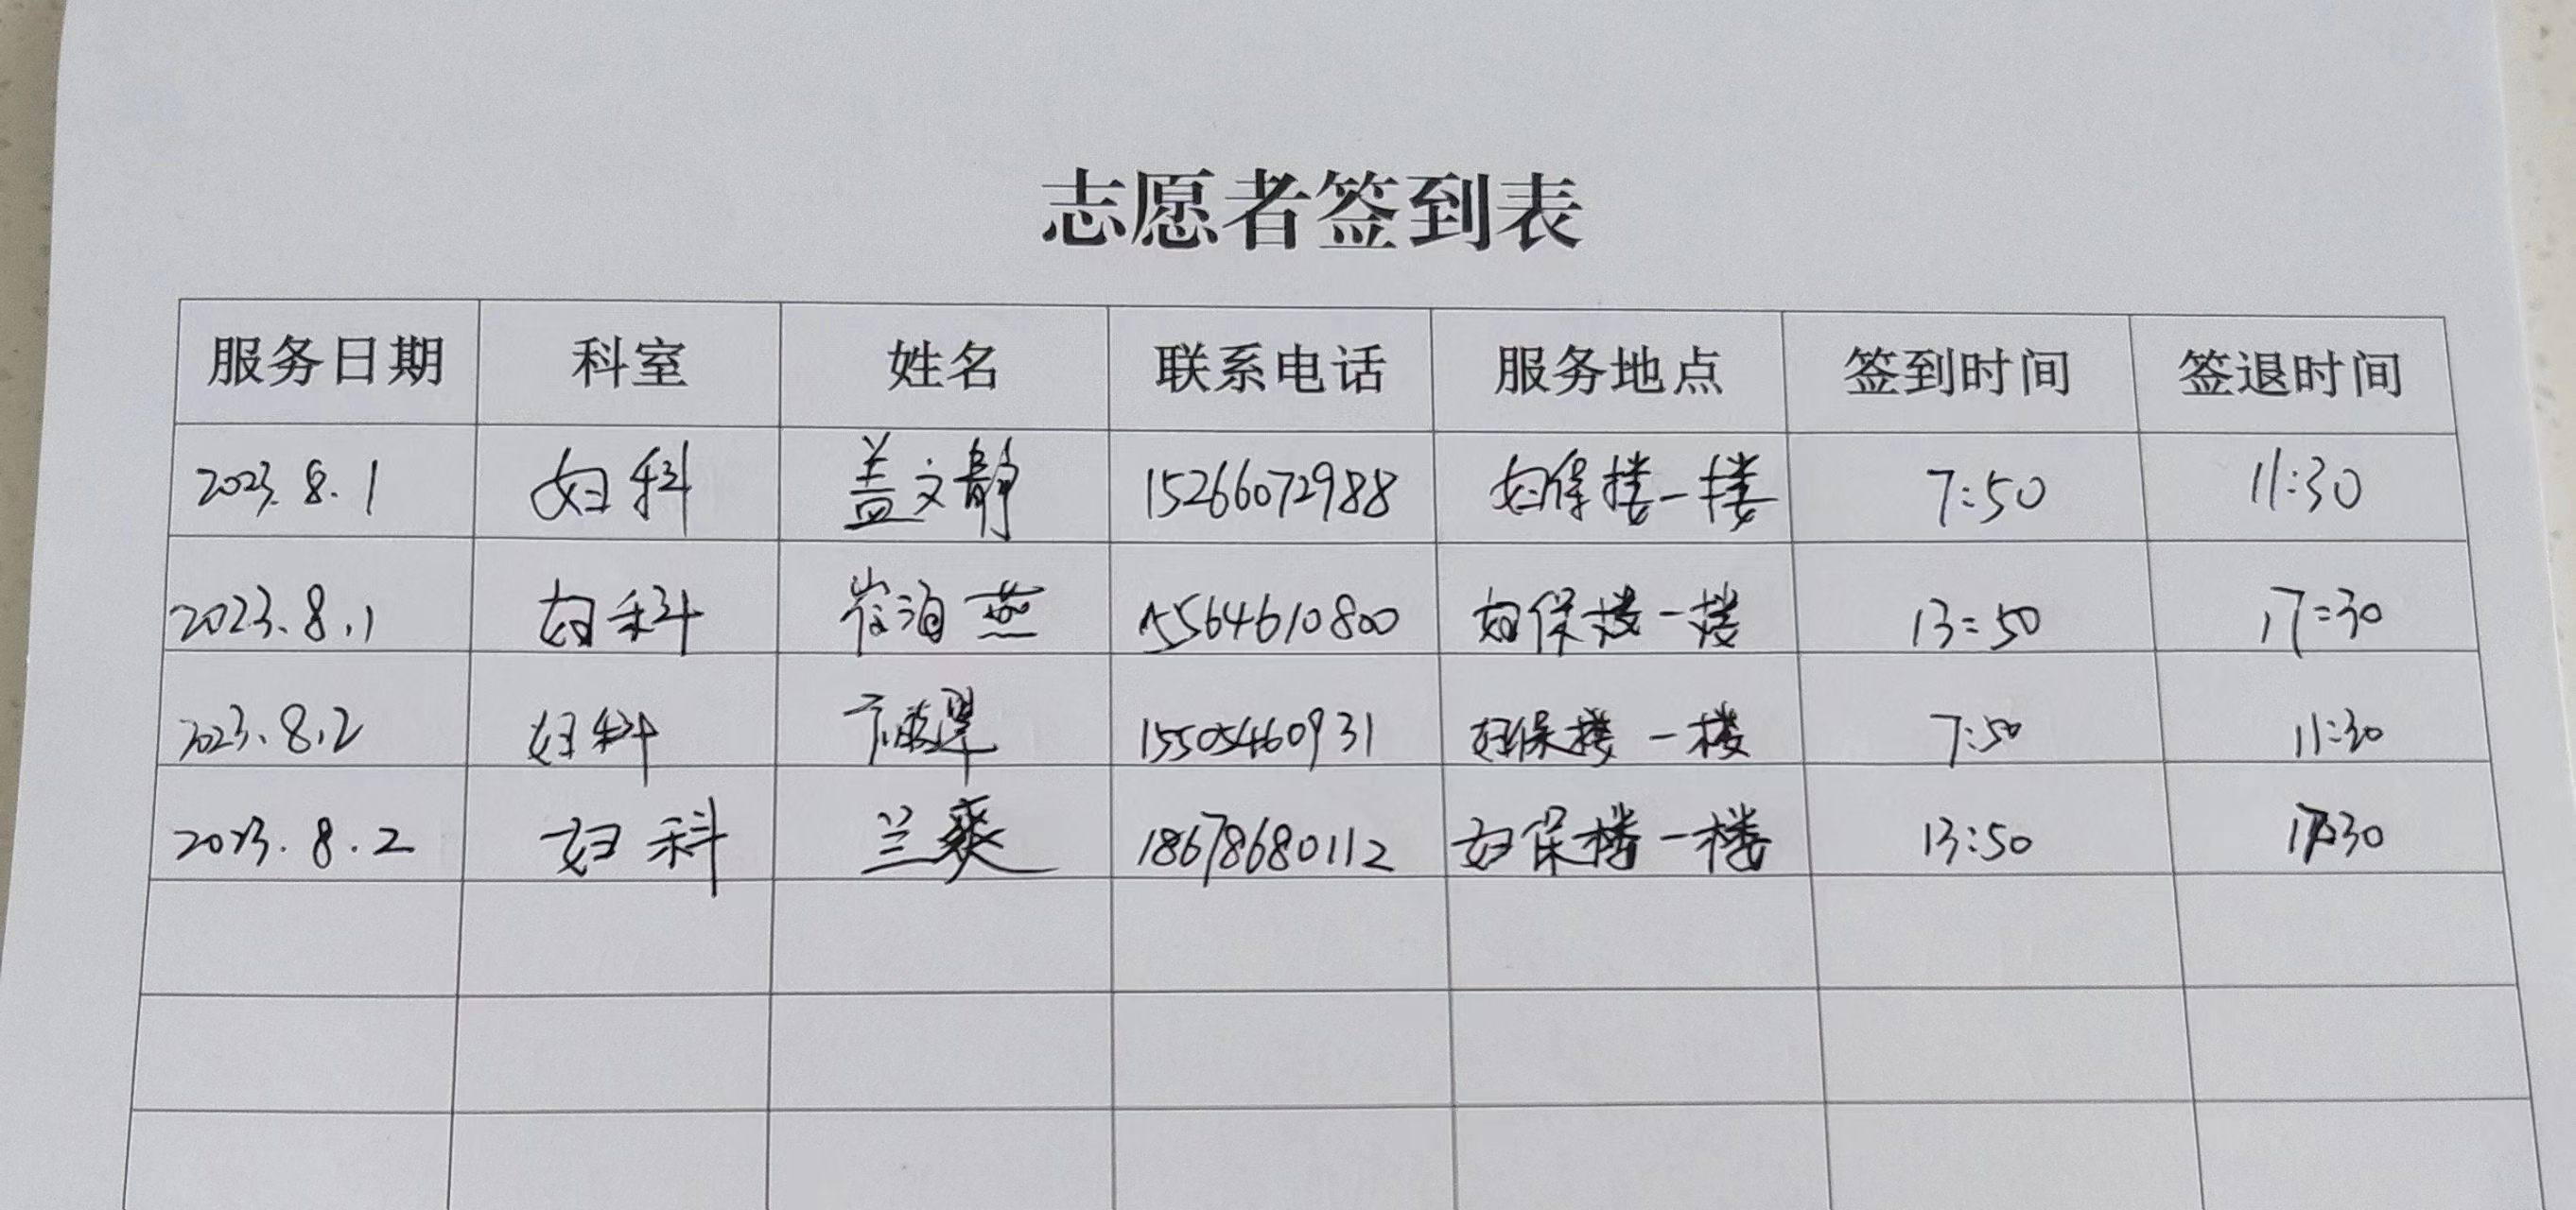 志愿者签到表
服务日期 科室 姓名 联系电话 服务地点 签到时间 签退时间
2023.8.1 妇科 盖文静 15266072988 妇保楼一楼 7:50 11:30
2023.8.1 妇科 崔海燕 15564610800 妇保楼一楼 13:50 17:30
2023.8.2 妇科 15505460931 妇保楼一楼 7:50 11:30
2023.8.2 妇科 兰爽 18678680112 妇保楼一楼 13:50 17:30